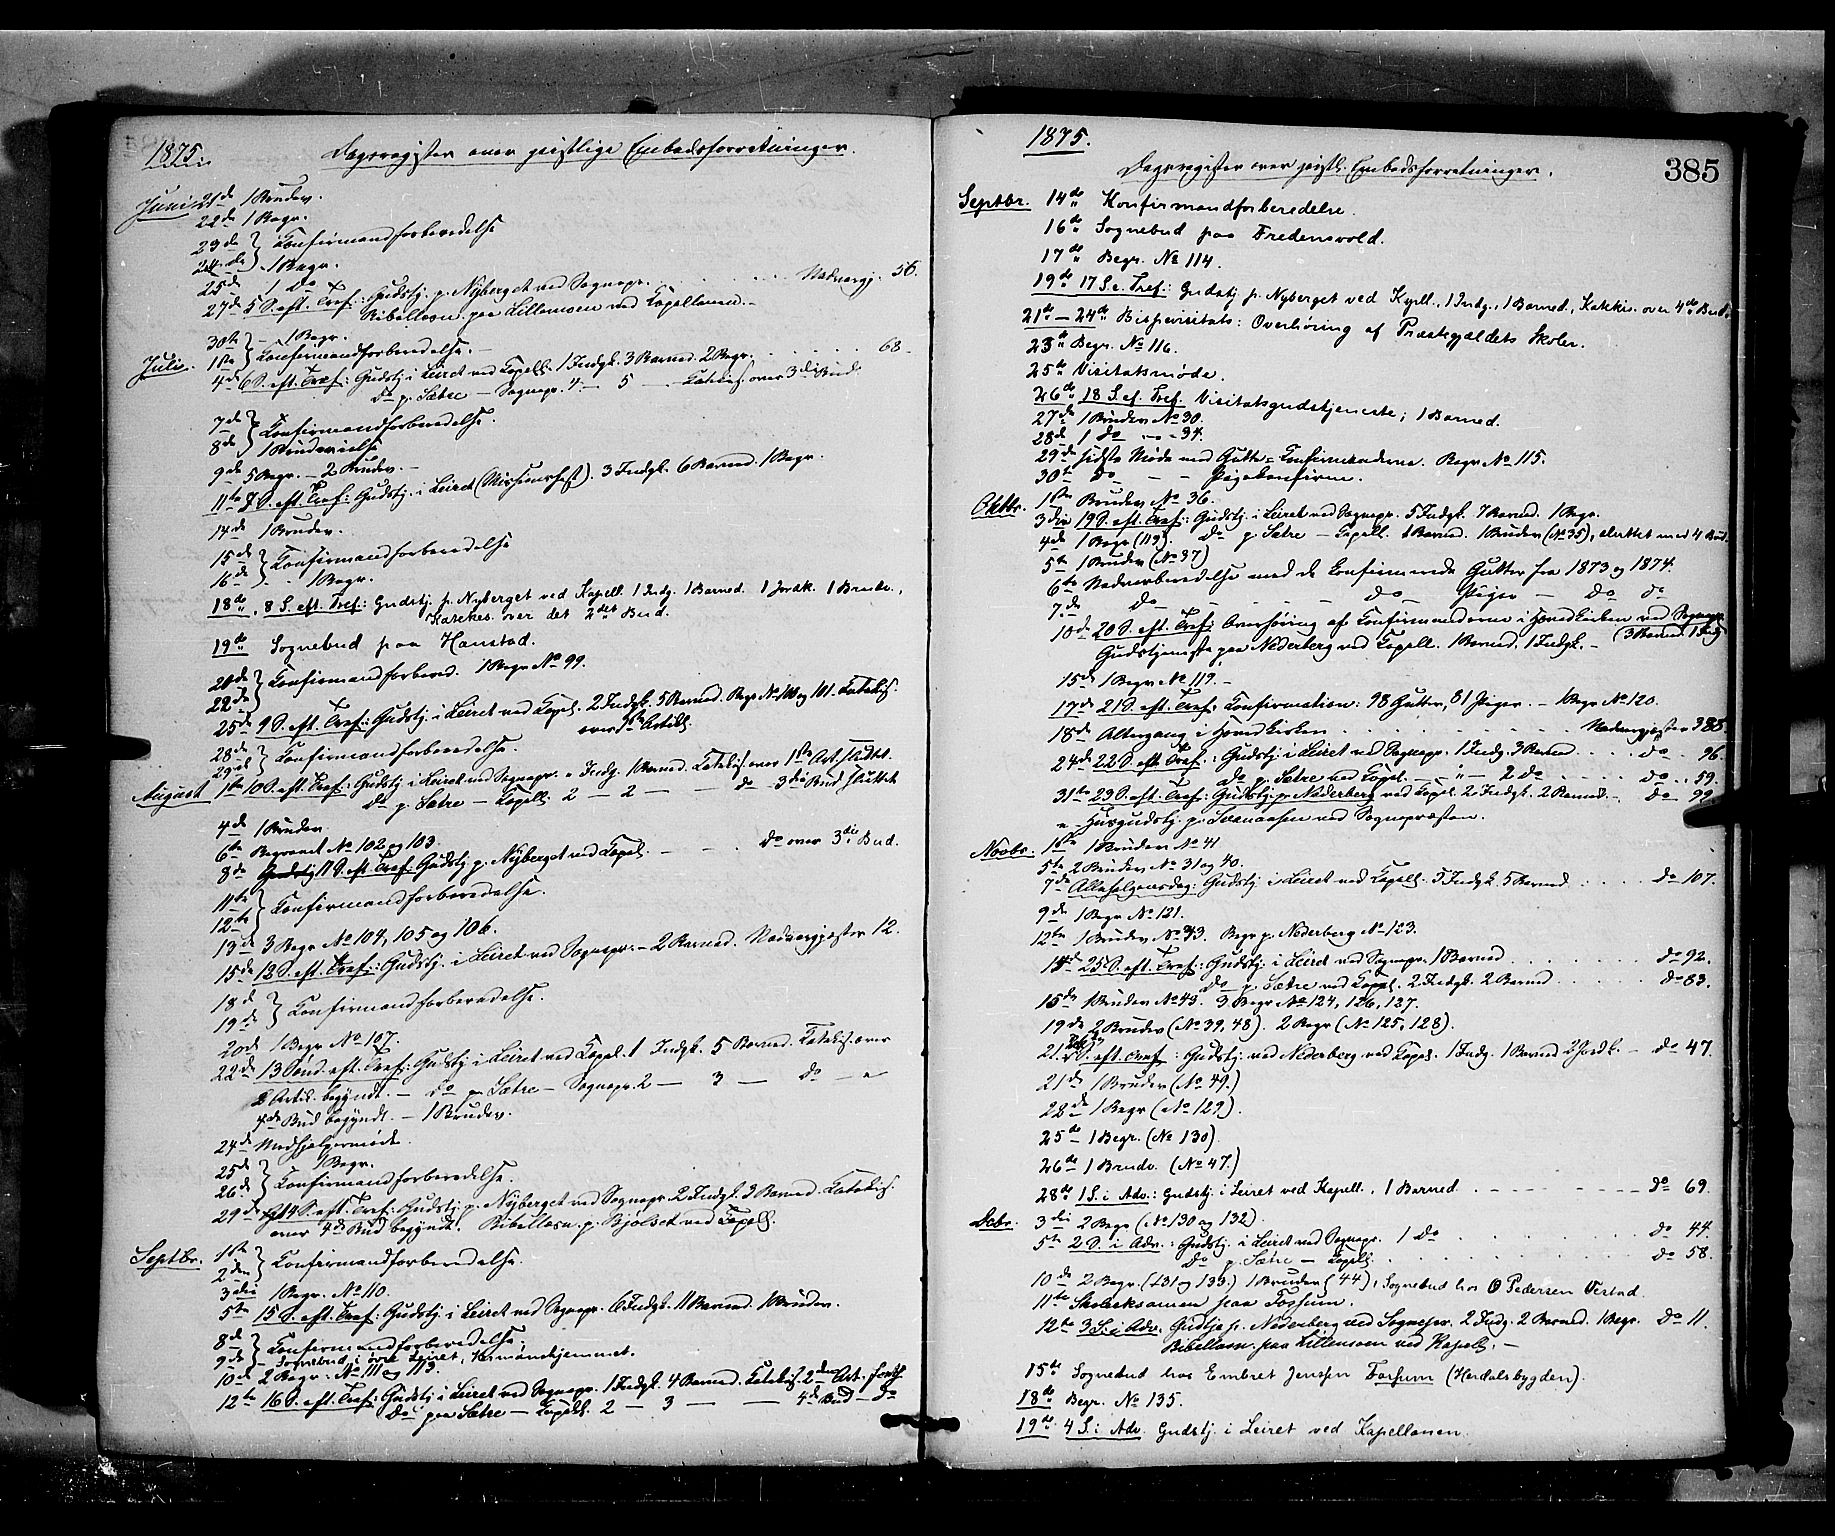 1875.
Dagsregister over geistlige Embedsforretninger.
Juni 21de 1 Brudev.
22de 1 Begr.
23de } Konfirmandforberedelse
24de } - 1 Begr.
25de 1 Do
27de 5 S. eft. Tref: Gudstj. p. Nyberget ved Sognepr. Nadvergj. 56.
Bibellæsn. paa Lillemoen ved Kapellanen.
30te } - 1 Begr.
Juli. 1ste } Konfirmandforberedelse.
4de 6 S. eft. Tref: Gudstj. i Leiret ved Kapell. 1 Indgk. 3 Barned. 2 Begr. 68.
Do p. Sætre — Sognepr. 4 — 5 — Katekis. over 3die Bud.
7de } Konfirmandforberedelse.
8de } 1 Brudevielse
9de 5 Begr. — 2 Brudev. —
11te 7 S. eft. Tref: Gudstj. i Leiret (Missionsfest). 3 Indgk. 6 Barned. 1 Begr.
14de 1 Brudev.
15de } Konfirmandforberedelse
16de } 1 Begr.
18de 8 S. eft. Tref: Gudstj. p. Nyberget ved Kapell. 1 Indg. 1 Barned. 1 Jordk. 1 Brudev.,
Katekes. over det 2det Bud.
19de Sognebud paa Hamstad.
20de } Konfirmandforbered. 1 Begr. No 99.
22de }
25de 9 S. eft. Tref: Gudstj. i Leiret ved Kapel. 2 Indgk. 5 Barned. Begr. No 100 og 101. Katekis.
over 1ste Artikl.
28de } Konfirmandforberedelse.
29de }
August 1ste 10 S. eft. Tref: Gudstj. i Leiret ved Sognepr. " Indg. 1 Barned. Katekis. over 1ste Art. sluttet.
Do p. Sætre — Kapell. 2 — 2 — — do — 3die Bud sluttet
4de 1 Brudev.
6te Begravet No 102 og 103.
8de 11 S. eft. Tref: Gudstj. p. Nyberget ved Kapel. — Do over 3die Bud.
11te } Konfirmandforberedelse.
12te }
13de 3 Begr. No 104, 105 og 106.
15de 12 S. eft. Tref: Gudstj. i Leiret ved Sognepr. — 2 Barned. Nadvergjester 12.
18de } Konfirmandforberedelse.
19de }
20de 1 Begr. No 107.
22de 13 Sønd. eft. Tref: Gudstj. i Leiret ved Kapel. 1 Indgk. 5 Barned. Katekis. over
2 Artik. begyndt. — Do p. Sætre — Sognepr. 2 — 3 — Do — "
4de Bud begyndt. — 1 Brudev.
24de Medhjælpermøde.
25de } 1 Begr.
26de } Konfirmandforberedelse.
29de 14 S. eft. Tref: Gudstj. p. Nyberget ved Sognepr. 2 Indgk. 3 Barned. Katekis.
over 4de Bud begyndt. Bibellæsn. p. Bjølset ved Kapell.
Septbr. 1ste } Konfirmandforberedelse.
2den }
3die 1 Begr. No 110.
5te 15 S. eft. Tref: Gudstj. i Leiret ved Sognepr. 6 Indgk. 11 Barned. 1 Brudev.
8de } Konfirmandforberedelse.
9de } — Sognebud i øvre Leiret,
10de 2 Begr. No 111 og 113.
12te 16 S. eft. Tref: Gudstj. i Leiret ved Sognepr. 1 Indgk. 4 Barned. Katekis. 2den Art. forts.
Do paa Sætre — Kapell. 2 — 3 — — 4de Bud — do
1875.
Dagsregister over geistl. Embedsforretninger.
385
Septbr. 14de Konfirmandforberedelse.
16de Sognebud paa Fredensvold.
17de Begr. No 114.
19de 17 S. e. Tref: Gudstj. p. Nyberget ved Kapell., 1 Indg., 1 Barned., Katekis. over 4de Bud.
21de — 24de Bispevisitats: Overhøring af Præstegjældets Skoler.
23de Begr. No 116.
25de Visitatsmøde.
26de 18 S. ef. Tref. Visitatsgudstjeneste; 1 Barned.
27de 1 Brudev. No 30.
28de 1 do — " — 34.
29de sidste Møde med Gutte-Konfirmanderne. Begr. No 115.
30te Do — — Pigekonfirm.
Oktbr. 1ste Brudev. No 36.
3die 19 S. eft. Tref: Gudstj. i Leiret ved Sognepr. 5 Indgk. 7 Barned. 1 Begr.
4de 1 Begr. (119). Do p. Sætre — Kapell. 1 Barned. 1 Brudev. (No 35), sluttet med 4 Bud.
5te 1 Brudev. (No 37)
6te Nadverberedelse med de konfirmerede Gutter fra 1873 og 1874.
7de Do — — — do — Piger — do do
10de 20 S. eft. Tref: Overhøring af Konfirmanderne i Hovedkirken ved Sognepr.
Gudstjeneste paa Nederberg ved Kapell. 1 Barned. 1 Indgk. — (3 Barned. 1 Indg.
15de 1 Begr. No 119. —
17de 21 S. eft. Tref: Konfirmation: 98 Gutter, 81 Piger. — 1 Begr. No 120.
18de Altergang i Hovedkirken Nadvergjester 385.
24de 22 S. eft. Tref: Gudstj. i Leiret ved Sognepr. 1 Indg. 3 Barned. do 96.
do p. Sætre ved Kapel. — " — 2 do do 59.
31te 23 S. eft. Tref: Gudstj. p. Nederberg ved Kapel. 2 Indgk. 2 Barned. do 99
" — Husgudstj. p. Svenaasen ved Sognepræsten.
Novbr. 1ste 1 Brudev. No 41
5te 2 Brudev. No 31 og 40.
7de Allehelgensdag: Gudstj. i Leiret ved Kapell. 5 Indgk. 5 Barned. Do 107.
9de 1 Begr. No 121.
12te 1 Brudev. No 43. Begr. p. Nederberg No 123.
14de 25 S. eft. Tref: Gudstj. i Leiret ved Sognepr. 1 Barned. do 92.
do p. Sætre ved Kapel. 2 Indgk. 2 Barned. do 83.
15de 1 Brudev. No 45. 3 Begr. No 124, 126, 127.
19de 2 Brudev. (No 39, 48). 2 Begr. (No 125, 128).
21. S. eft. Tref: Gudstj. ved Nederberg ved Kapel. 1 Indg. 1 Barned 2 Jordk. — do 47.
21de 1 Brudev. (No 49.)
22de 1 Begr. (No 129).
25de 1 Begr. (No 130).
26de 1 Brudv. (No 47.)
28de 1 S. i Adv.: Gudstj. i Leiret ved Kapell., 1 Barned. Do 69.
Decbr. 3die 2 Begr. (No 130 og 132).
5te 2 S. i Adv.: Gudstj. i Leiret ved Sognepr. 1 Do Do 44.
Do p. Sætre — Kapell. Do 58.
10de 2 Begr. (131 og 133.) 1 Brudev. (44), Sognebud hos O Pedersen Vestad.
11te Skoleeksamen paa Fossum.
12te 3 S. i Adv. Gudtj. p. Nederberg ved Sognepr. 2 Indg. 2 Barned. 1 Begr. Do 11.
Bibellæsn. paa Lillemoen ved Kapell. —
15de Sognebud hos Embret Jensen Fossum (Herdalsbygden).
18de Begr. No 135.
19de 4 S. i Adv. Gudstj. i Leiret ved Kapellanen.